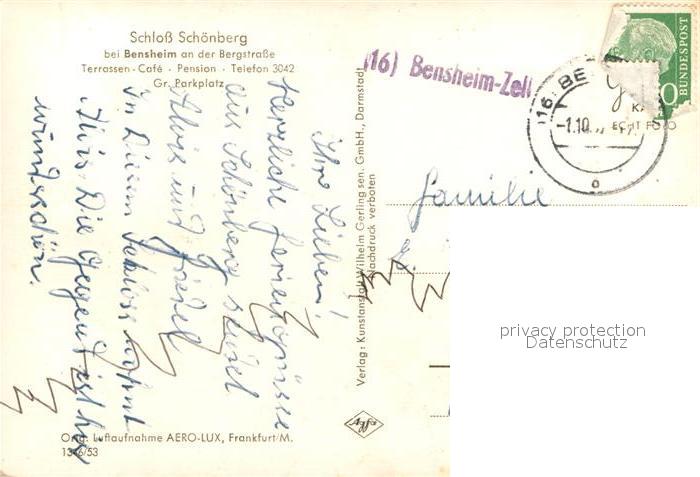 Schloß Schönberg
bei Bensheim an der Bergstraße
Terrassen-Café · Pension · Telefon 3042
Gr. Parkplatz
Ihr Lieben!
Herzliche Feriengrüsse
aus Schönberg sendet
Alois und
In diesem Schloss wohnt
Alois. Die Gegend ist hier
wunderschön.
Orig. Luftaufnahme AERO-LUX, Frankfurt/M.
1346/53
Verlag: Kunstanstalt Wilhelm Gerling sen. GmbH., Darmstadt
Nachdruck verboten
Agfa
(16) Bensheim-Zell
(16) BE
-1.10.
BUNDESPOST
0
ECHT FOTO
Familie
privacy protection
Datenschutz